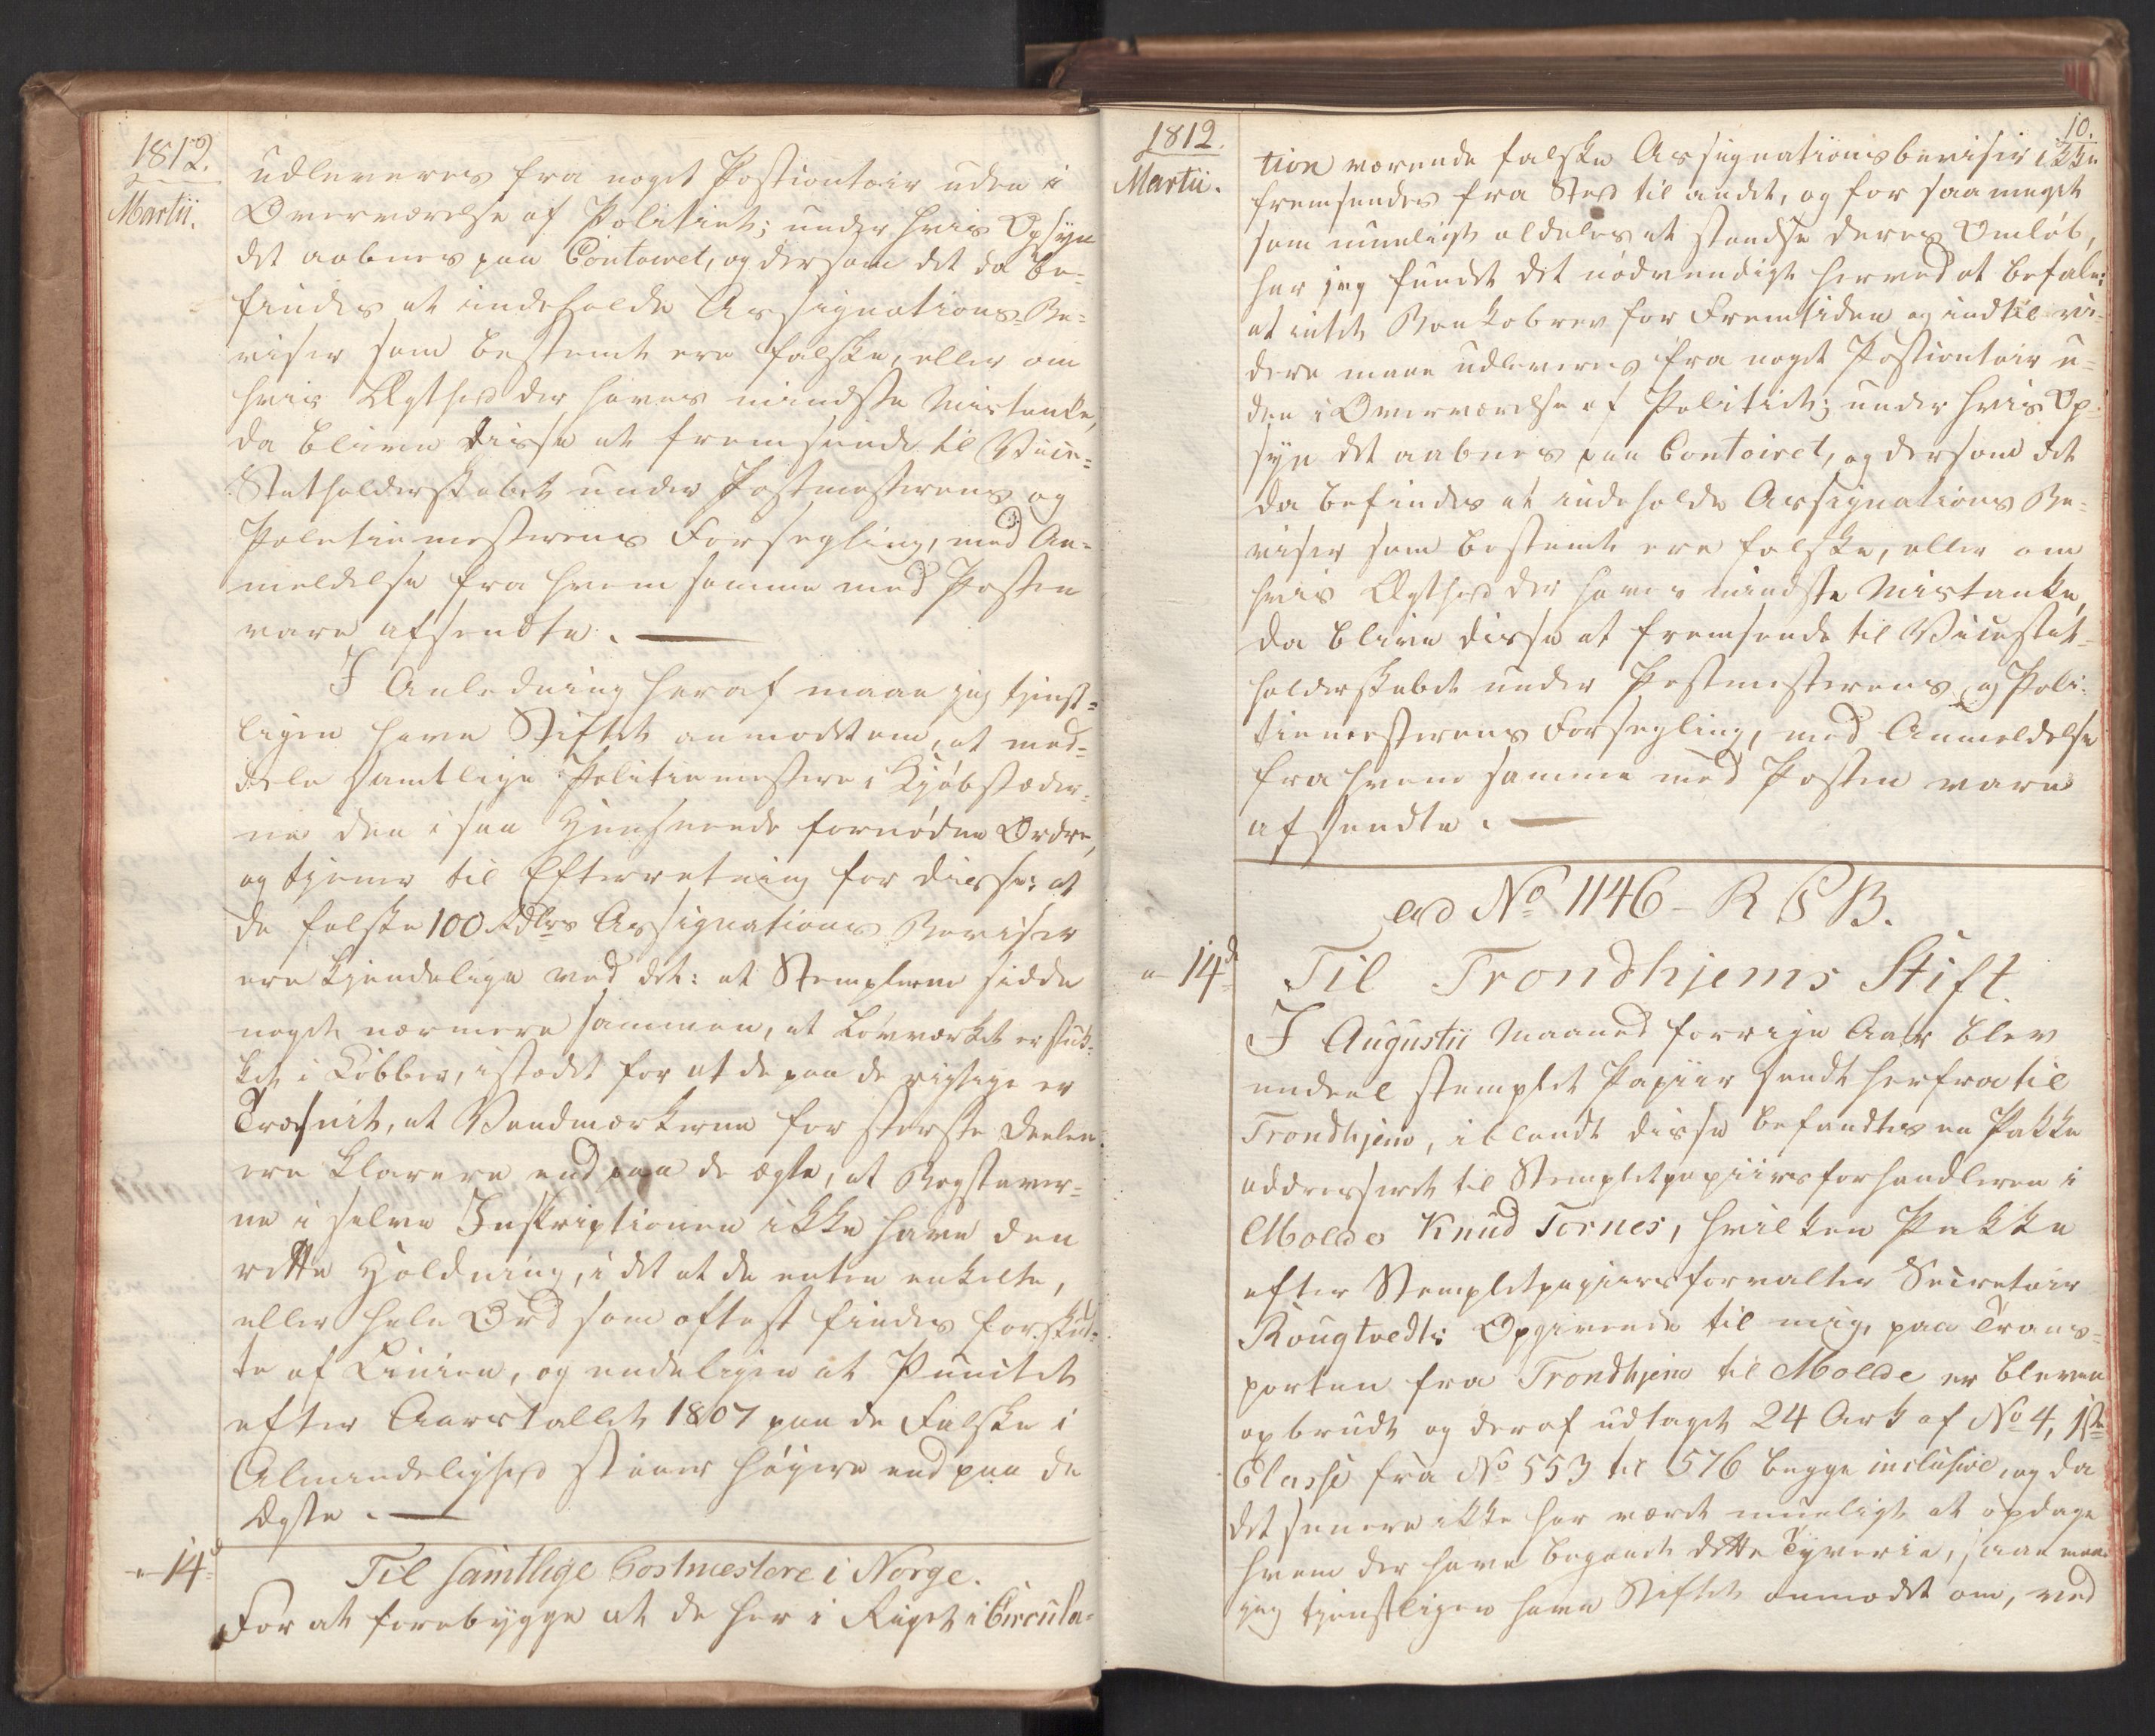 1812.
Martii.
udleveres fra noget Postcontoir uden i
Overværelse af Politiet; under hvis Opsyn
det aabnes paa Contoiret, og dersom det da be-
findes at indeholde Assignations-Be-
viser som bestemt ere falske, eller om
hvis Ægthed der haves mindste Mistanke,
da blive disse at fremsende til Vice-
Statholderskabet under Postmesterens og
Politiemesterens Forsegling, med An-
meldelse fra hvem samme med Posten
vare afsendte. —
I Anledning heraf maae jeg tjenst-
ligen have Stiftet anmodet om, at med-
dele samtlige Politiemestere i Kjøbstæder-
ne den i saa Henseende fornødne Ordre,
og tjener til Efterretning for disse: at
de falske 100 Rdlrs Assignations Beviser
ere kjendelige ved det: at Stemplerne sidde
noget nærmere sammen, at Løvværket er stuk-
ket i Kobber, istedet for at de paa de rigtige er
Træsnit, at Vandmærkerne for største Deelen
ere klarere end paa de ægte, at Bogstaver-
ne i selve Inskriptionen ikke have den
rette Holdning, i det at de enten enkelte,
eller hele Ord som oftest findes forskud-
te af Linien, og endeligen at Punctet
efter Aarstallet 1807 paa de Falske i
Almindelighed staaer høyere end paa de
Ægte. —
" 14d
Til samtlige Postmestere i Norge.
For at forebygge at de her i Riget i Circula-
10.
1812.
Martii.
tion værende falske Assignationsbeviser ikke
fremsendes fra Sted til andet, og for saa meget
som mueligt aldeles at standse deres Omløb,
har jeg fundet det nødvendigt herved at befale:
at intet Bankobrev for Fremtiden og indtil vi-
dere maae udleveres fra noget Postcontoir u-
den i Overværelse af Politiet; under hvis Op-
syn det aabnes paa Contoiret, og dersom det
da befindes at indeholde Assignations Be-
viser som bestemt ere falske, eller om
hvis Ægthed der haves mindste Mistanke,
da blive disse at fremsende til Vicestat-
holderskabet under Postmesterens og Poli-
tiemesterens Forsegling, med Anmeldelse
fra hvem samme med Posten vare
afsendte. —
ad No 1146 - R P B.
" 14d
Til Trondhjems Stift.
I Augustii Maaned forrige Aar blev
endeel stemplet Papiir sendt herfra til
Trondhjem, iblandt disse befandtes en Pakke
addresseret til Stempletpapiirsforhandleren i
Molde Knud Tornes, hvilken Pakke
efter Stempletpapiirsforvalter Secretair
Rougtvedts Opgivende til mig, paa Trans-
porten fra Trondhjem til Molde er bleven
opbrudt og deraf udtaget 24 Ark af No 4, 1ste
Classe fra No 553 til 576 begge inclusive, og da
det senere ikke har været mueligt at opdage
hvem der have begaaet dette Tyverie, saa maae
jeg tjenstligen have Stiftet anmodet om, ved